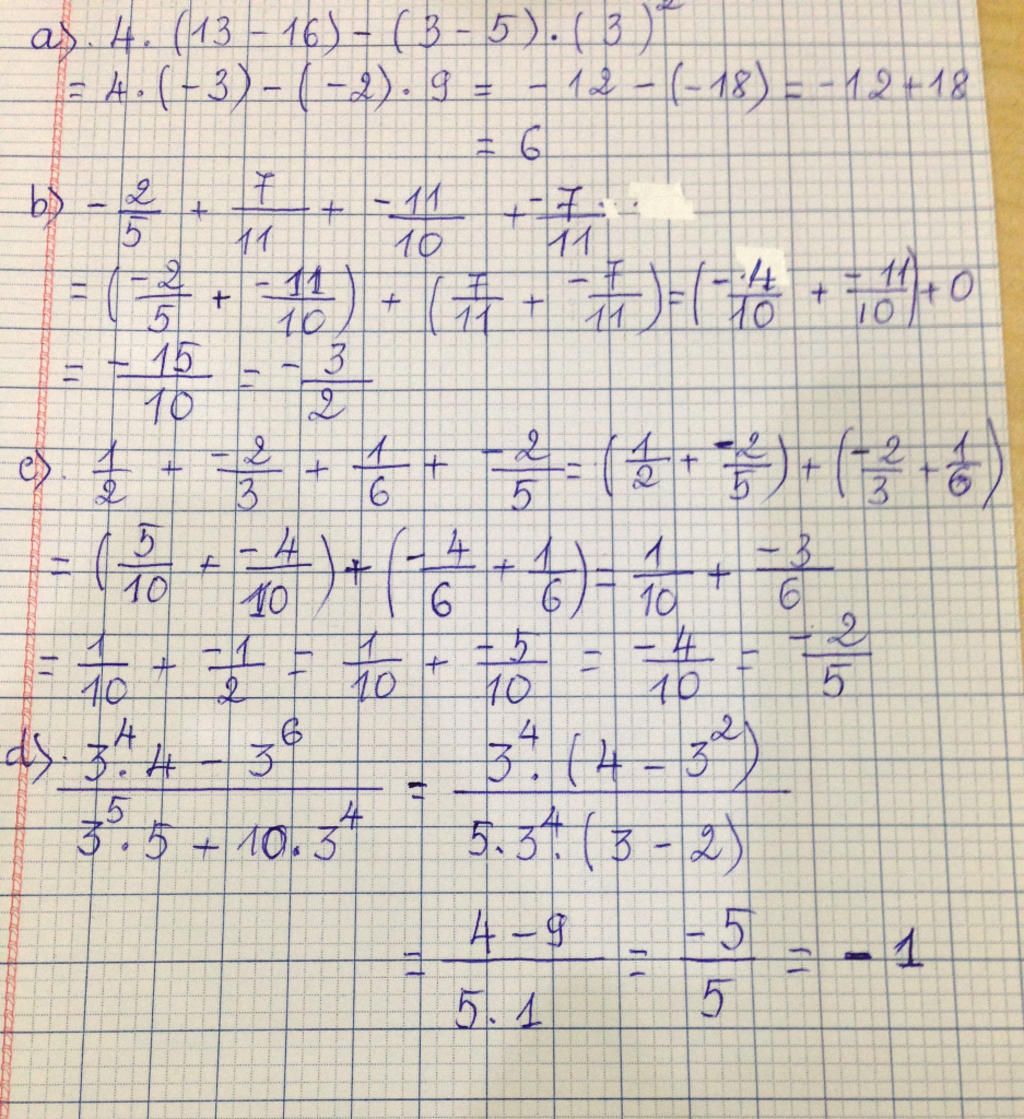 a) 4 . (13 - 16) - (3 - 5) . (3)²
= 4 . (-3) - (-2) . 9 = - 12 - (-18) = -12 + 18
= 6
b) -2/5 + 7/11 + -11/10 + -7/11
= (-2/5 + -11/10) + (7/11 + -7/11) = (-4/10 + -11/10) + 0
= -15/10 = -3/2
c) 1/2 + -2/3 + 1/6 + -2/5 = (1/2 + -2/5) + (-2/3 + 1/6)
= (5/10 + -4/10) + (-4/6 + 1/6) = 1/10 + -3/6
= 1/10 + -1/2 = 1/10 + -5/10 = -4/10 = -2/5
d) (3⁴ . 4 - 3⁶)/(3⁵ . 5 + 10 . 3⁴) = (3⁴ . (4 - 3²))/(5 . 3⁴ . (3 - 2))
= (4 - 9)/(5 . 1) = -5/5 = - 1